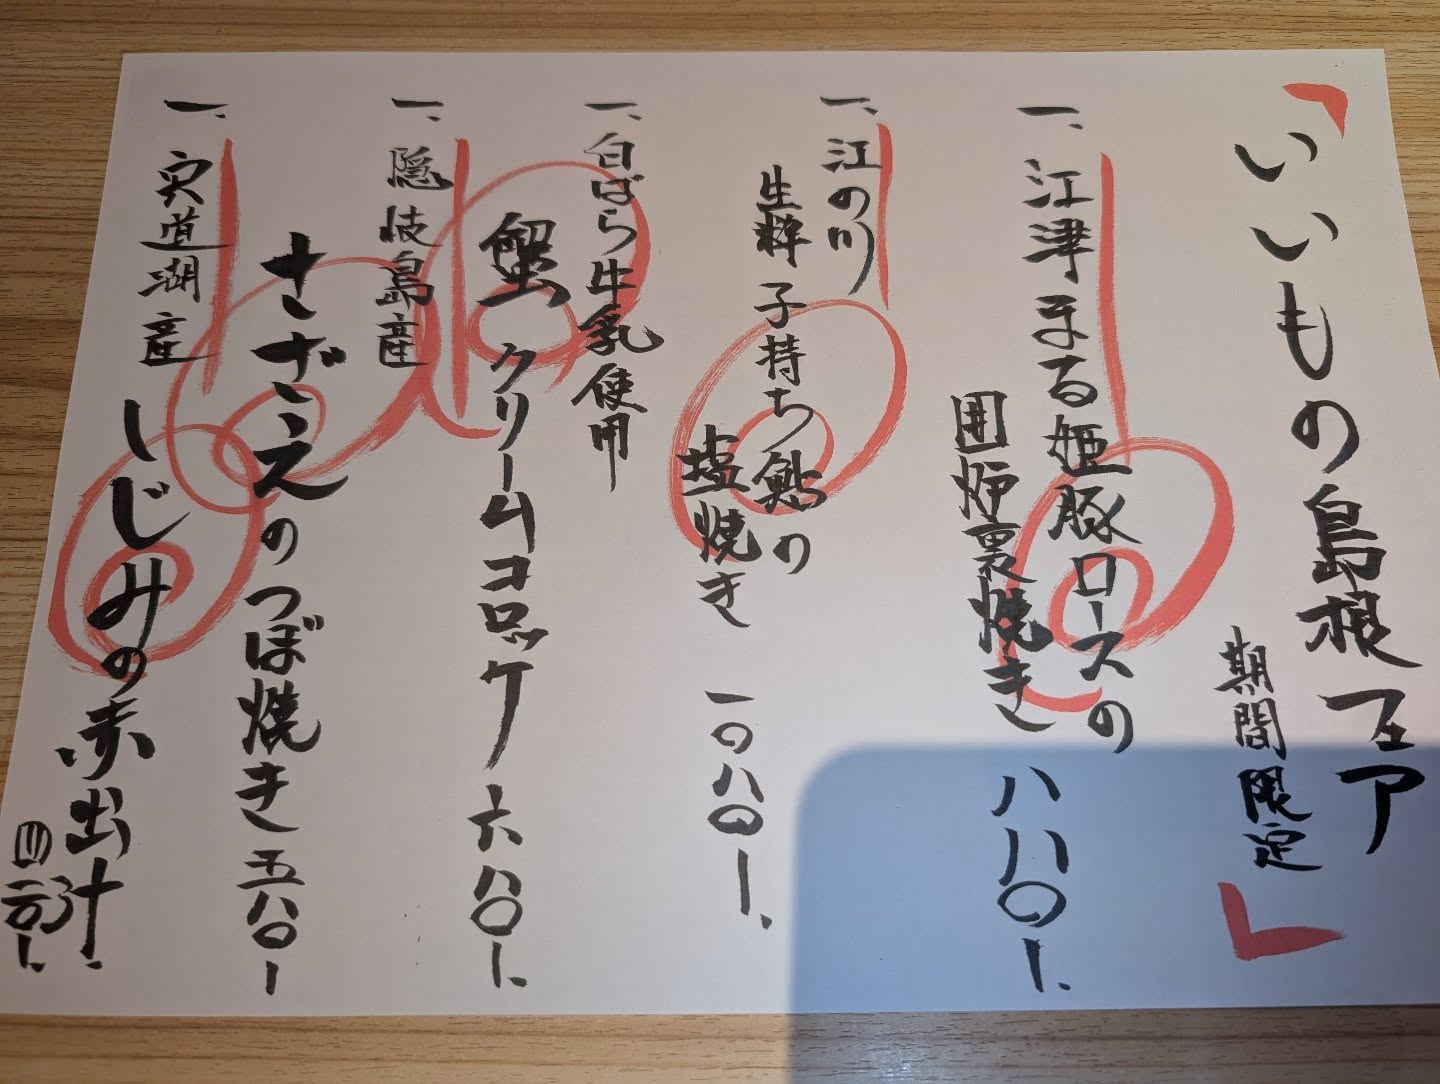 「いいもの島根フェア
期間限定」
一、江津まる姫豚ロースの
囲炉裏焼き 八八〇ー、
一、江の川
生粋 子持ち鮎の
塩焼き 一〇八〇ー、
一、白ばら牛乳使用
蟹クリームコロッケ 六八〇ー、
一、隠岐島産
さざえのつぼ焼き 五八〇ー
一、宍道湖産
しじみの赤出汁
四三〇ー、